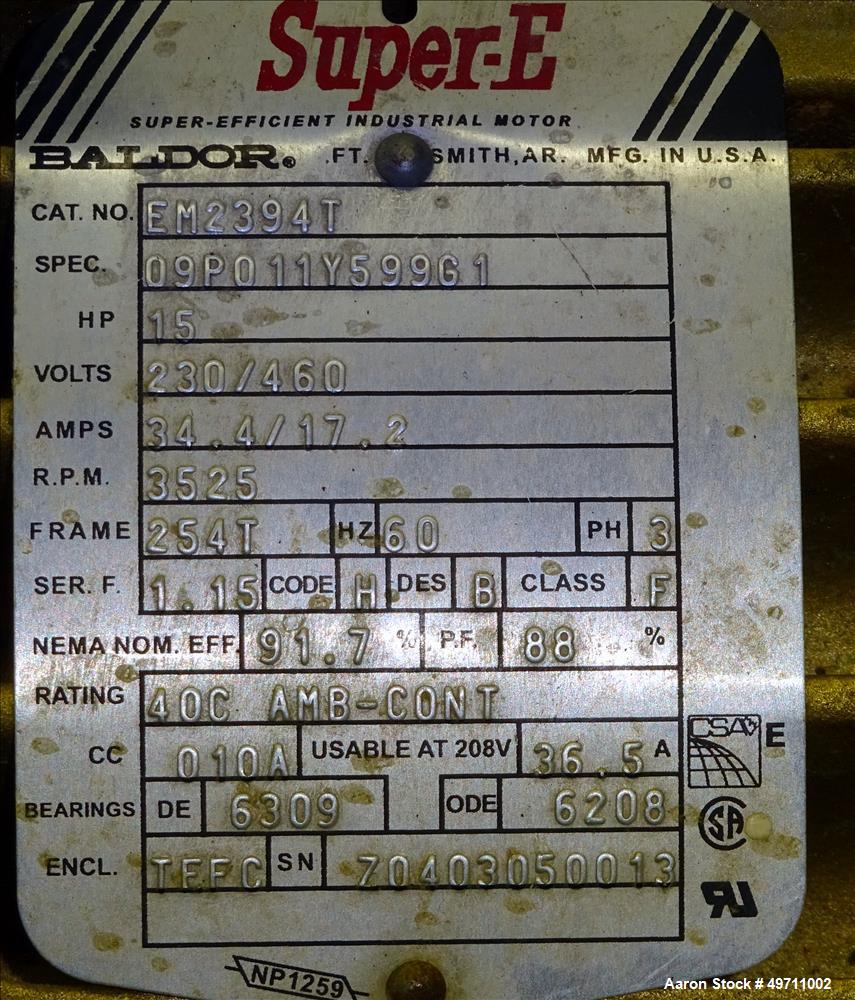 Super-E
SUPER-EFFICIENT INDUSTRIAL MOTOR
BALDOR® .FT. SMITH, AR. MFG. IN U.S.A.
CAT. NO. EM2394T
SPEC. 09P011Y599G1
HP 15
VOLTS 230/460
AMPS 34.4/17.2
R.P.M. 3525
FRAME 254T HZ 60 PH 3
SER. F. 1.15 CODE H DES B CLASS F
NEMA NOM. EFF. 91.7 % P.F. 88 %
RATING 40C AMB-CONT
CC 010A USABLE AT 208V 36.5 A
CSA E
BEARINGS DE 6309 ODE 6208
SA
ENCL. TEFC SN Z0403050013
UR
NP1259
Aaron Stock # 49711002